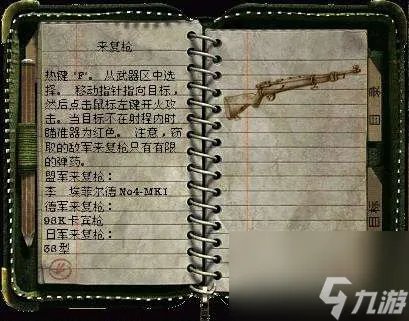 来复枪
热键 "F"。从武器区中选
择。 移动指针指向目标,
然后点击鼠标左键开火攻
击。当目标不在射程内时
瞄准器为红色。 注意,窃
取的敌军来复枪只有有限
的弹药。
盟军来复枪:
李. 埃菲尔德 No4-MK1
德军来复枪:
98K卡宾枪
日军来复枪:
38型
目录
目标
九游